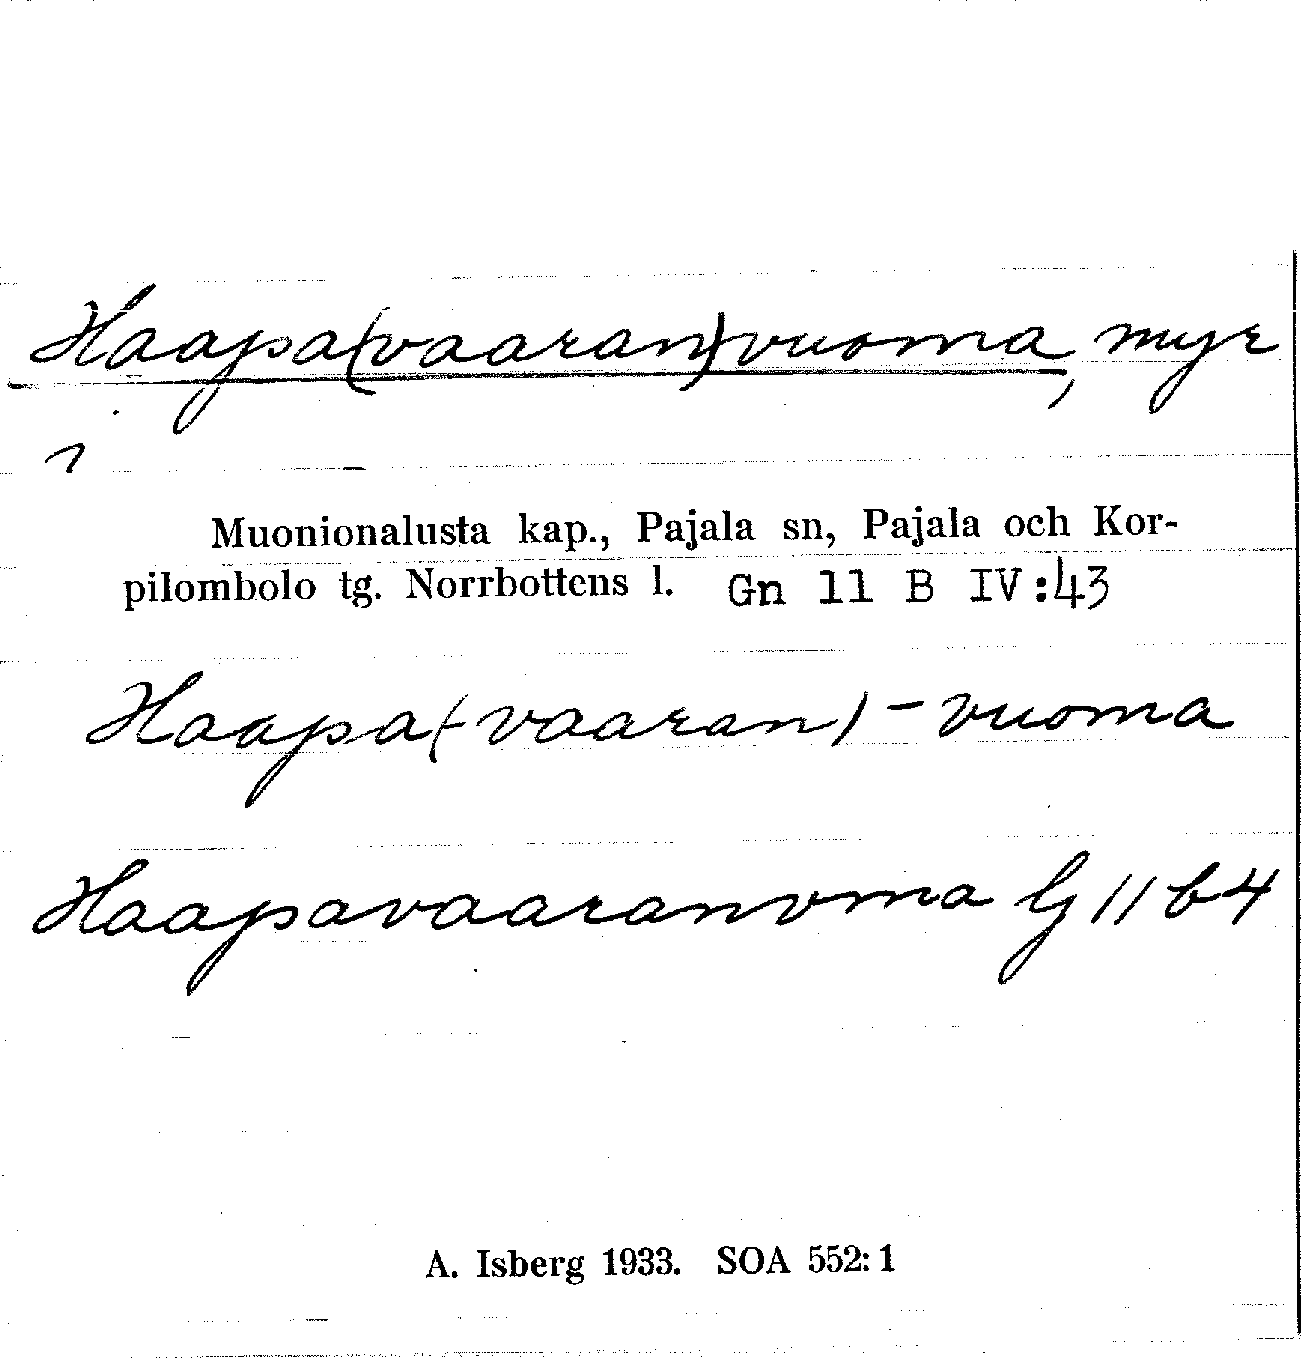 Haapa(vaaran)vuoma, myr
i
Muonionalusta kap., Pajala sn, Pajala och Kor-
pilombolo tg. Norrbottens l. Gn 11 B IV:43
Haapa(-vaaran)-vuoma
Haapavaaranvma G 11 b 4
A. Isberg 1933. SOA 552:1